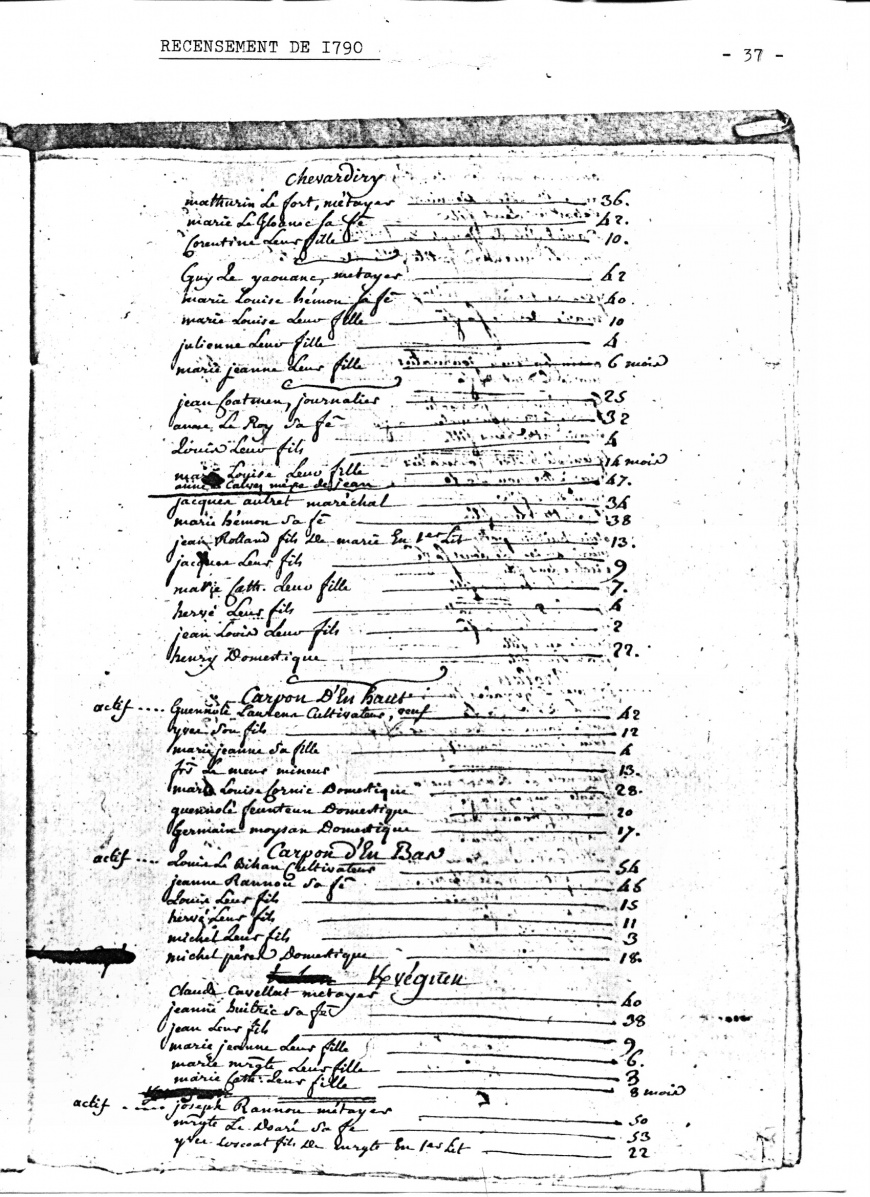 RECENSEMENT DE 1790
- 37 -
Chevardiry
mathurin Le fort, métayer 36.
marie Le Gloanec sa fe 42.
Corentine Leur fille 10.
Guy Le yaouanc, metayer 42
marie Louise hémon sa fe 40.
marie Louise Leur fille 10
julienne Leur fille 4
marie jeanne Leur fille 6 mois
jean Coatmen, journalier 25
anne Le Roy sa fe 32
Louis Leur fils 4
marie Louise Leur fille 14 mois
anne Calvez mère de jean 47.
jacques autret maréchal 34
marie hémon sa fe 38
jean Rolland fils De marie En 1er Lit 13.
jacques Leur fils 9
marie Cath. Leur fille 7.
hervé Leur fils 4
jean Louis Leur fils 2
henry Domestique 22.
Carpon D'En haut
actif .... Guennolé Laurens Cultivateur, veuf 42
yves son fils 12
marie jeanne sa fille 4
frs Le meur mineur 13.
marie Louise Cornic Domestique 28.
guennolé feunteun Domestique 20
Germain moysan Domestique 17.
Carpon d'En Bas
actif .... Louis Le Bihan Cultivateur 54
jeanne Rannou sa fe 46
Louis Leur fils 15
hervé Leur fils 11
michel Leur fils 3
michel Domestique 18.
Kvéguen
Claude Cavellat metayer 40
jeanne huitric sa fe 38
jean Leur fils 9
marie jeanne Leur fille 6.
marie mrgte Leur fille 3
marie Cath. Leur fille 8 mois
actif .... joseph Rannou métayer 50
mrgte Le Doaré sa fe 53
yves fils De mrgte En 1er Lit 22